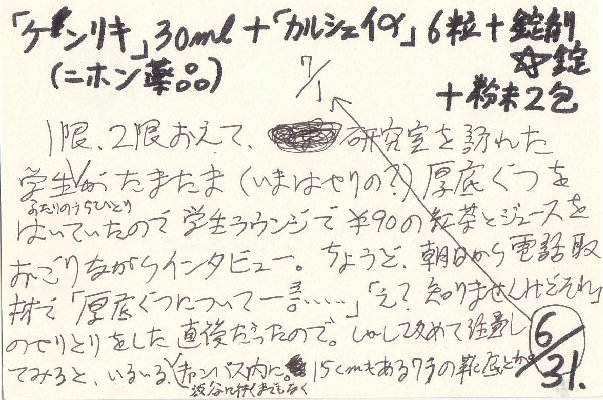 「ケンリキ」30ml+「カルシェイα」6粒+錠剤
☆錠
(ニホン薬品)
+粉末2包
7/1
1限、2限おえて、研究室を訪れた
学生がたまたま(いまはやりの?)厚底ぐつを
ふたりのうちひとり
はいていたので学生ラウンジで¥90の紅茶とジュースを
おごりながらインタビュー。ちょうど、朝日から電話取
材で「厚底ぐつについて一言……」「え?知りませんけどそれ」
のやりとりをした直後だったので。しかして改めて注意し
てみると、いるいる、キャンパス内に。15cmもある7才の靴底とか。
渋谷に行くまでもなく
6/31.